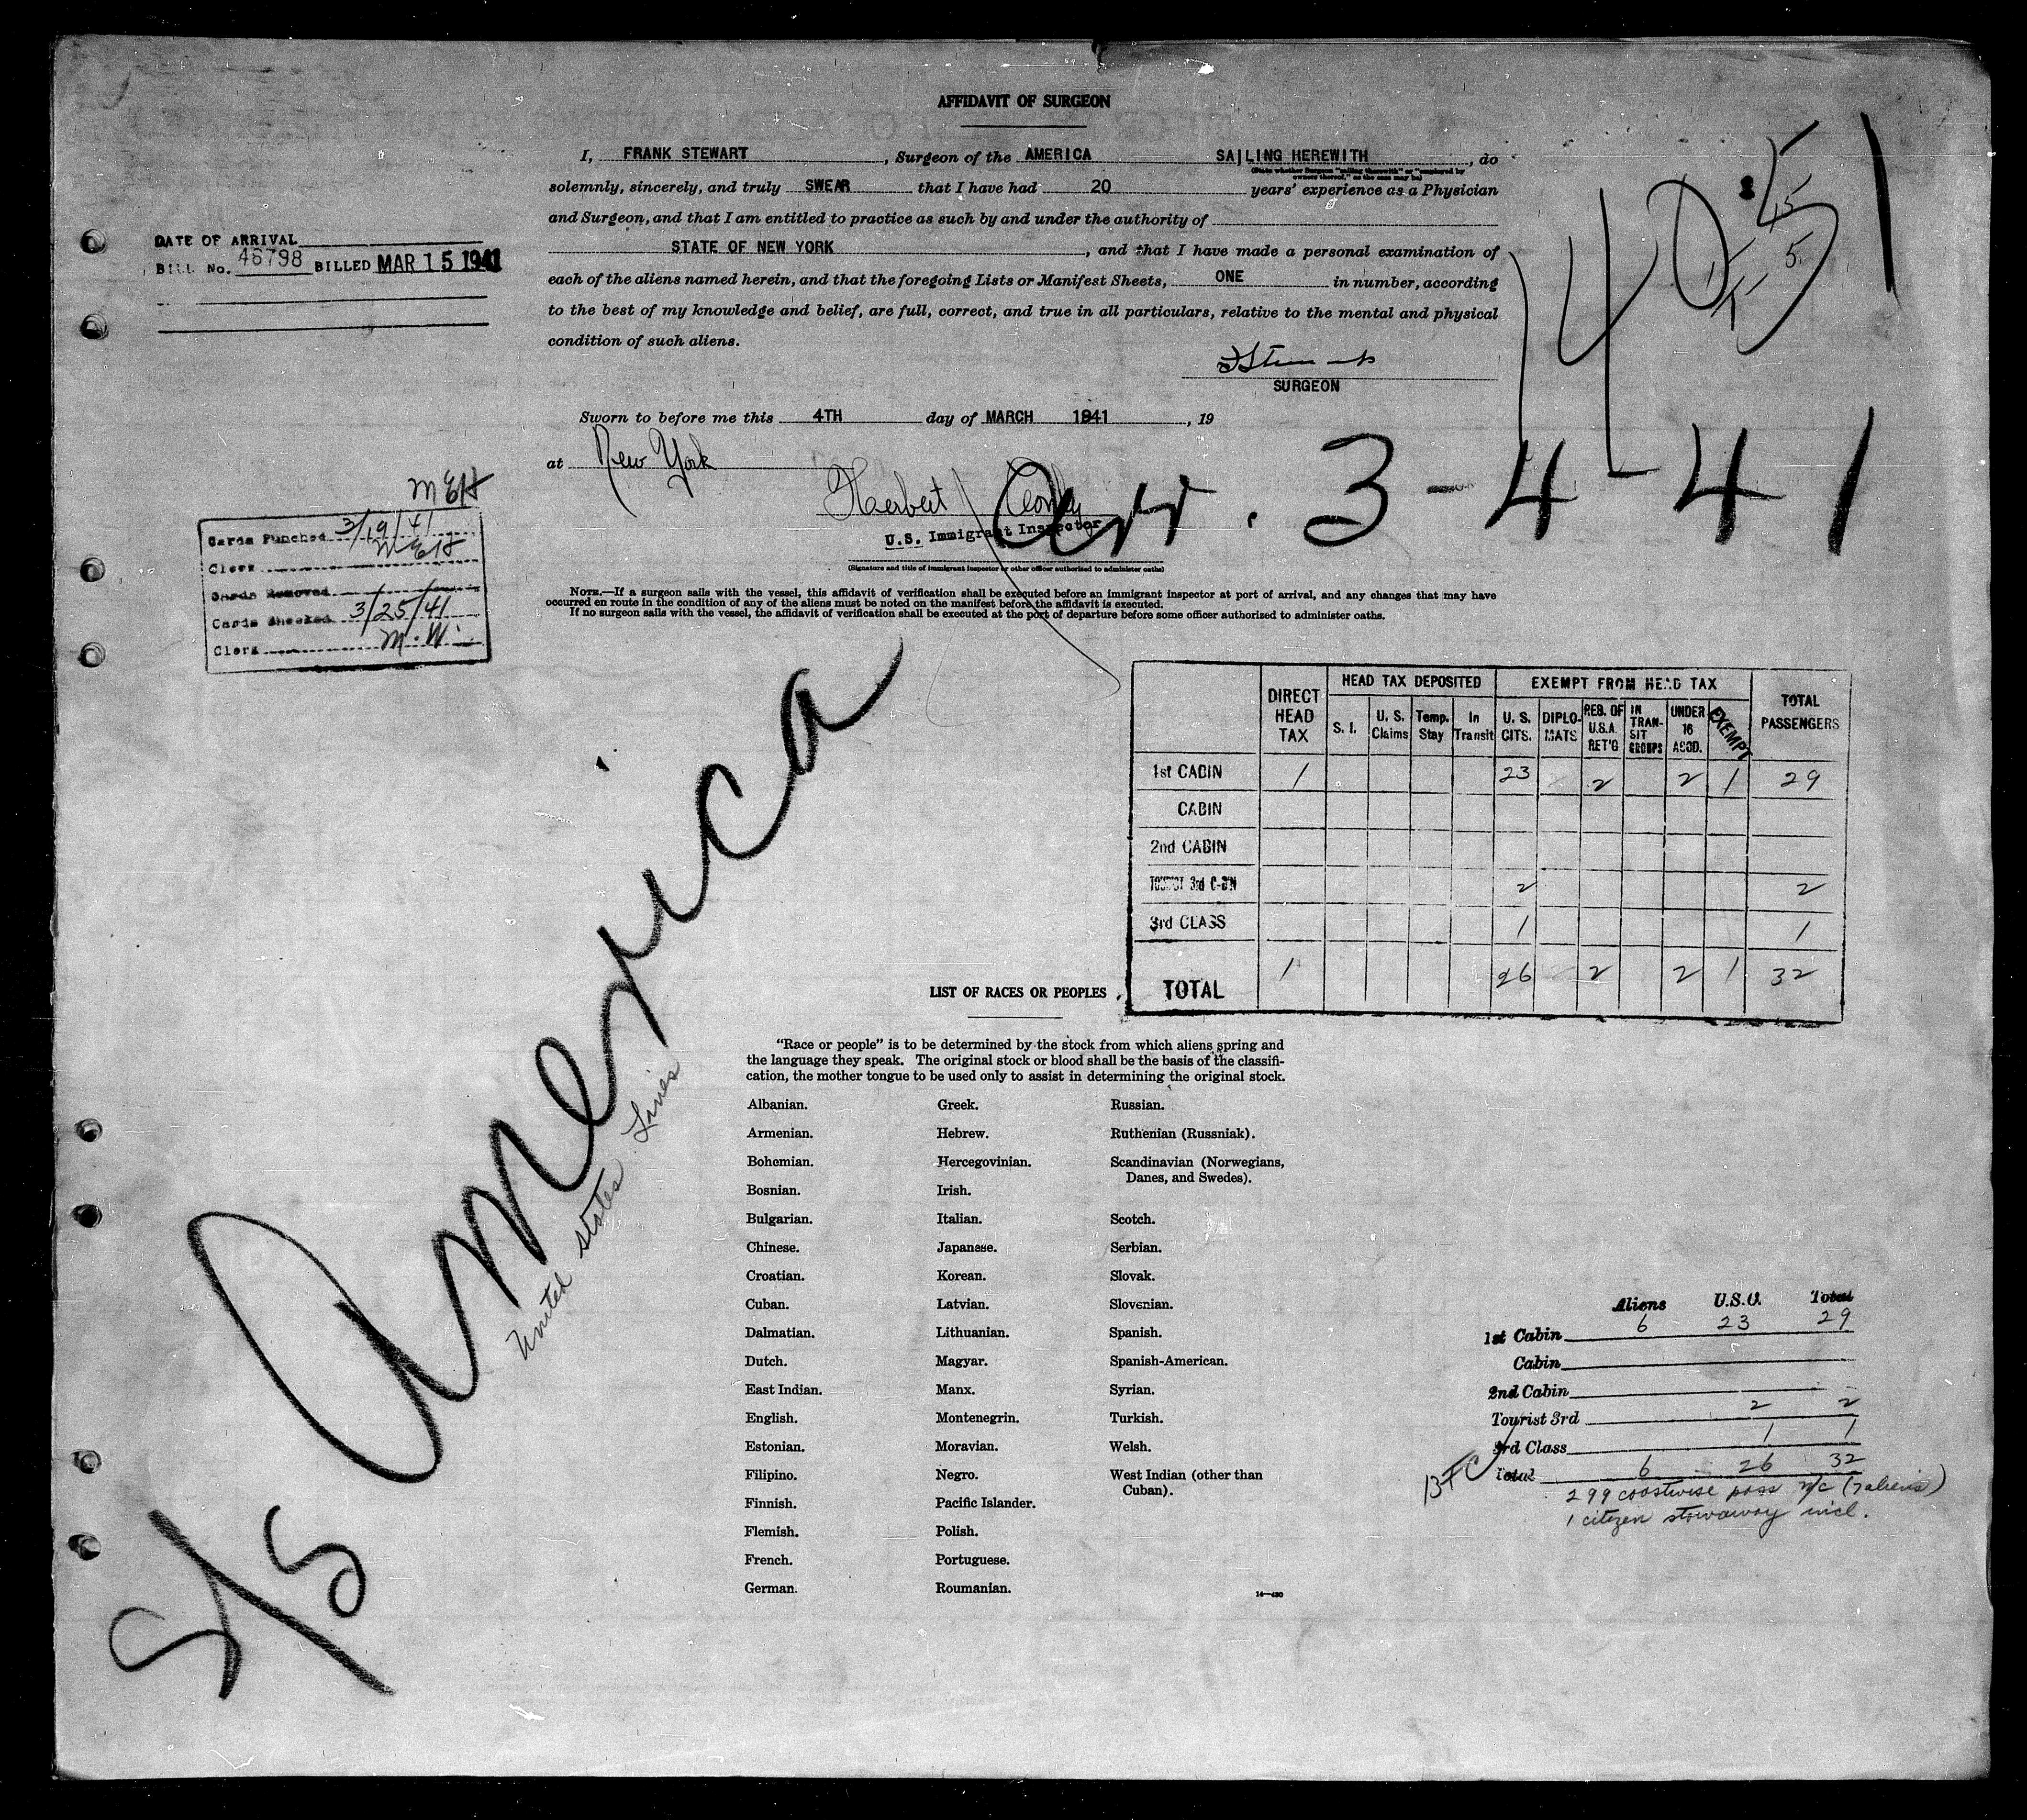 AFFIDAVIT OF SURGEON
I, FRANK STEWART, Surgeon of the AMERICA SAILING HEREWITH, do
(State whether Surgeon "sailing therewith" or "employed by
owners thereof," as the case may be)
solemnly, sincerely, and truly SWEAR that I have had 20 years' experience as a Physician
and Surgeon, and that I am entitled to practice as such by and under the authority of
STATE OF NEW YORK, and that I have made a personal examination of
each of the aliens named herein, and that the foregoing Lists or Manifest Sheets, ONE in number, according
to the best of my knowledge and belief, are full, correct, and true in all particulars, relative to the mental and physical
condition of such aliens.
SURGEON
Sworn to before me this 4TH day of MARCH 1941, 19
at New York
Herbert
U.S. Immigrant Inspector
(Signature and title of immigrant inspector or other officer authorized to administer oaths)
Arr. 3-4-41
DATE OF ARRIVAL
BILL No. 46798 BILLED MAR 15 1941
MEH
Cards Punched 3/19/41
Clerk MEH
Cards Removed
Cards Checked 3/25/41
Clerk M.W.
NOTE.—If a surgeon sails with the vessel, this affidavit of verification shall be executed before an immigrant inspector at port of arrival, and any changes that may have
occurred en route in the condition of any of the aliens must be noted on the manifest before the affidavit is executed.
If no surgeon sails with the vessel, the affidavit of verification shall be executed at the port of departure before some officer authorized to administer oaths.
HEAD TAX DEPOSITED EXEMPT FROM HEAD TAX
DIRECT HEAD TAX S. I. U. S. Claims Temp. Stay In Transit U. S. CITS. DIPLO-MATS RES. OF U.S.A. RET'G IN TRAN-SIT GROUPS UNDER 16 ACOD. EXEMPT TOTAL PASSENGERS
1st CABIN 1 23 2 2 1 29
CABIN
2nd CABIN
TOURIST 3rd CABIN 2 2
3rd CLASS 1 1
TOTAL 1 26 2 2 1 32
S/S America
United States Lines
LIST OF RACES OR PEOPLES
"Race or people" is to be determined by the stock from which aliens spring and
the language they speak. The original stock or blood shall be the basis of the classifi-
cation, the mother tongue to be used only to assist in determining the original stock.
Albanian.
Armenian.
Bohemian.
Bosnian.
Bulgarian.
Chinese.
Croatian.
Cuban.
Dalmatian.
Dutch.
East Indian.
English.
Estonian.
Filipino.
Finnish.
Flemish.
French.
German.
Greek.
Hebrew.
Hercegovinian.
Irish.
Italian.
Japanese.
Korean.
Latvian.
Lithuanian.
Magyar.
Manx.
Montenegrin.
Moravian.
Negro.
Pacific Islander.
Polish.
Portuguese.
Roumanian.
Russian.
Ruthenian (Russniak).
Scandinavian (Norwegians,
Danes, and Swedes).
Scotch.
Serbian.
Slovak.
Slovenian.
Spanish.
Spanish-American.
Syrian.
Turkish.
Welsh.
West Indian (other than
Cuban).
14—430
Aliens U.S.C. Total
1st Cabin 6 23 29
Cabin
2nd Cabin
Tourist 3rd 2 2
3rd Class 1 1
Total 6 26 32
299 coastwise pass n/c (7 aliens)
1 citizen stowaway incl.